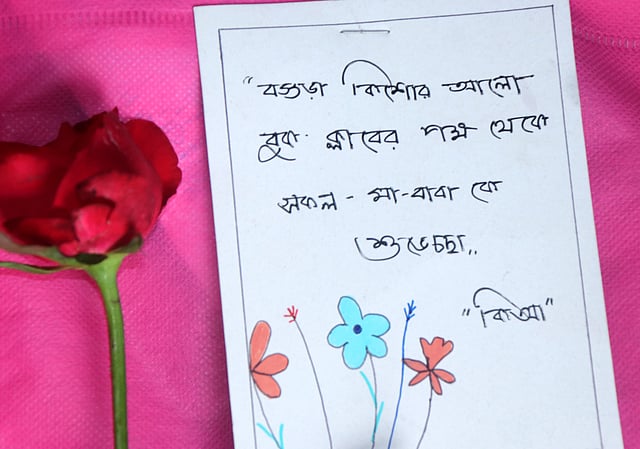 "বগুড়া কিশোর আলো
বুক ক্লাবের পক্ষ থেকে
সকল - মা-বাবা কে
শুভেচ্ছা..